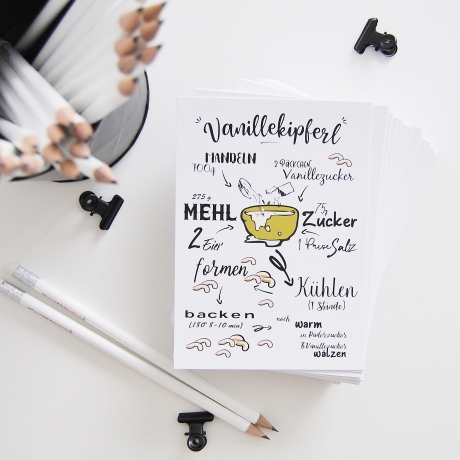 "Vanillekipferl"
MANDELN
100g
2 PÄCKCHEN
Vanillezucker
275 g
MEHL
75g
Zucker
2 Eier
1 Prise Salz
formen
Kühlen
(1 Stunde)
backen
(180° 8-10 min)
noch
warm
in Puderzucker
& Vanillezucker
wälzen